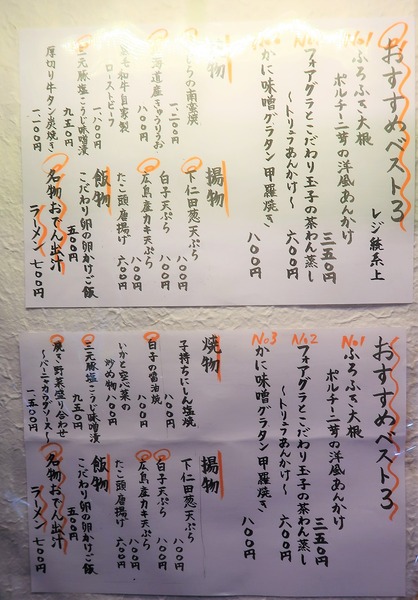 おすすめベスト3
レジ縦系上
No.1
ふろふき大根
ポルチーニ茸の洋風あんかけ
三五〇円
フォアグラとこだわり玉子の茶わん蒸し
〜トリュフあんかけ〜
六〇〇円
かに味噌グラタン甲羅焼き
八〇〇円
物
らの南蛮漬
一、二〇〇円
海道産きゅうりうお
八〇〇円
毛和牛自家製
ローストビーフ
一、八〇〇円
三元豚塩こうじ味噌漬
九五〇円
厚切り牛タン炭焼き
一、一〇〇円
揚物
下仁田葱天ぷら
八〇〇円
白子天ぷら
八〇〇円
広島産カキ天ぷら
八〇〇円
たこ頭唐揚げ
六〇〇円
飯物
こだわり卵の卵かけご飯
五〇〇円
名物おでん出汁
ラーメン 七〇〇円
おすすめベスト3
No.1
ふろふき大根
ポルチーニ茸の洋風あんかけ
三五〇円
No.2
フォアグラとこだわり玉子の茶わん蒸し
〜トリュフあんかけ〜
六〇〇円
No.3
かに味噌グラタン甲羅焼き
八〇〇円
焼物
子持ちにしん塩焼
八〇〇円
白子の醤油焼
八〇〇円
いかと空心菜の
炒め物 八〇〇円
三元豚塩こうじ味噌漬
九五〇円
焼き野菜盛り合わせ
〜バーニャカウダソース〜
一、五〇〇円
揚物
下仁田葱天ぷら
八〇〇円
白子天ぷら
八〇〇円
広島産カキ天ぷら
八〇〇円
たこ頭唐揚げ
六〇〇円
飯物
こだわり卵の卵かけご飯
五〇〇円
名物おでん出汁
ラーメン 七〇〇円